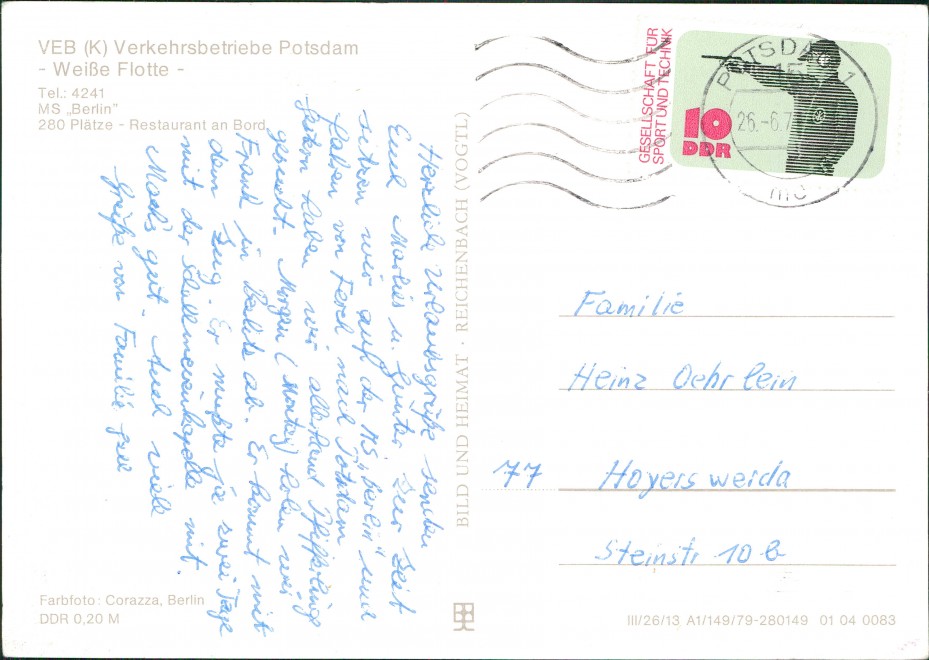 VEB (K) Verkehrsbetriebe Potsdam
- Weiße Flotte -
Tel.: 4241
MS „Berlin"
280 Plätze - Restaurant an Bord
Herzliche Urlaubsgrüße senden
Euch Marlies u. Günter. Zur Zeit
sitzen wir auf der MS „Berlin" und
fahren von Ferch nach Potsdam.
Gestern haben wir allerhand Pfifferlinge
gesucht. Morgen (Montag) holen wir
Frank in Beelitz ab. Er kommt mit
dem Zug. Er mußte ja zwei Tage
mit der Schalmeienkapelle mit.
Machs gut. Auch viele
Grüße von Familie
Farbfoto: Corazza, Berlin
DDR 0,20 M
BILD UND HEIMAT · REICHENBACH (VOGTL)
GESELLSCHAFT FÜR
SPORT UND TECHNIK
10
DDR
POTSDAM 1
26.-6.7
Familie
Heinz Oehrlein
77 Hoyerswerda
Steinstr 10 b
III/26/13 A1/149/79-280149 01 04 0083